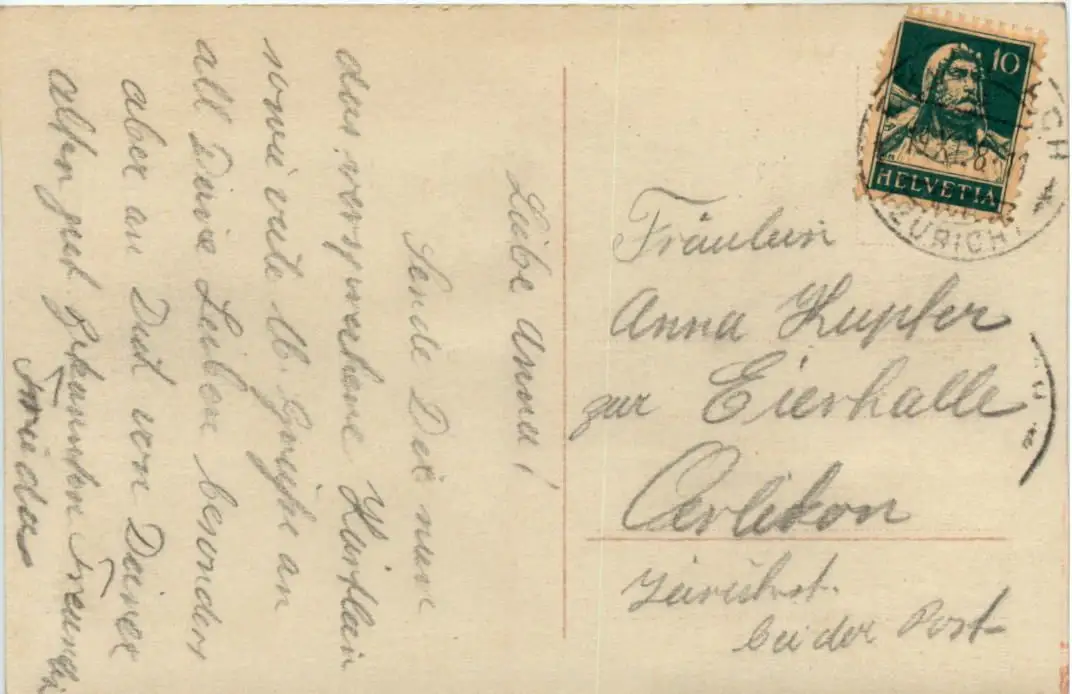 Liebe Anna!
Sende Dir nun
das versprochene Kärtlein
sowie viele h. Grüße an
all Deine Lieben besonders
aber an Dich von Deiner
alten gut bekannten Freundin
Frieda
10
HELVETIA
ZÜRICH
Fräulein
Anna Kupfer
zur Eierhalle
Oerlikon
Zürichst.
bei der Post